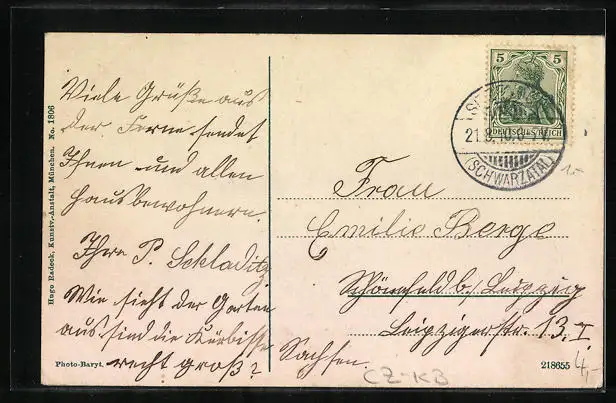 Viele Grüße aus
der Ferne sendet
Ihnen und allen
Hausbewohnern.
Ihre P. Schladitz
Wie sieht der Garten
aus sind die Kürbisse
recht groß?
Hugo Radeck, Kunstv.-Anstalt, München. No. 1806
Photo-Baryt.
5 5
DEUTSCHES REICH
21.8.
(SCHWARZATAL)
Frau
Emilie Berge
Schönefeld b/ Leipzig
Leipzigerstr. 13. I
Sachsen.
218655
1.-
4,-
CZ-KB